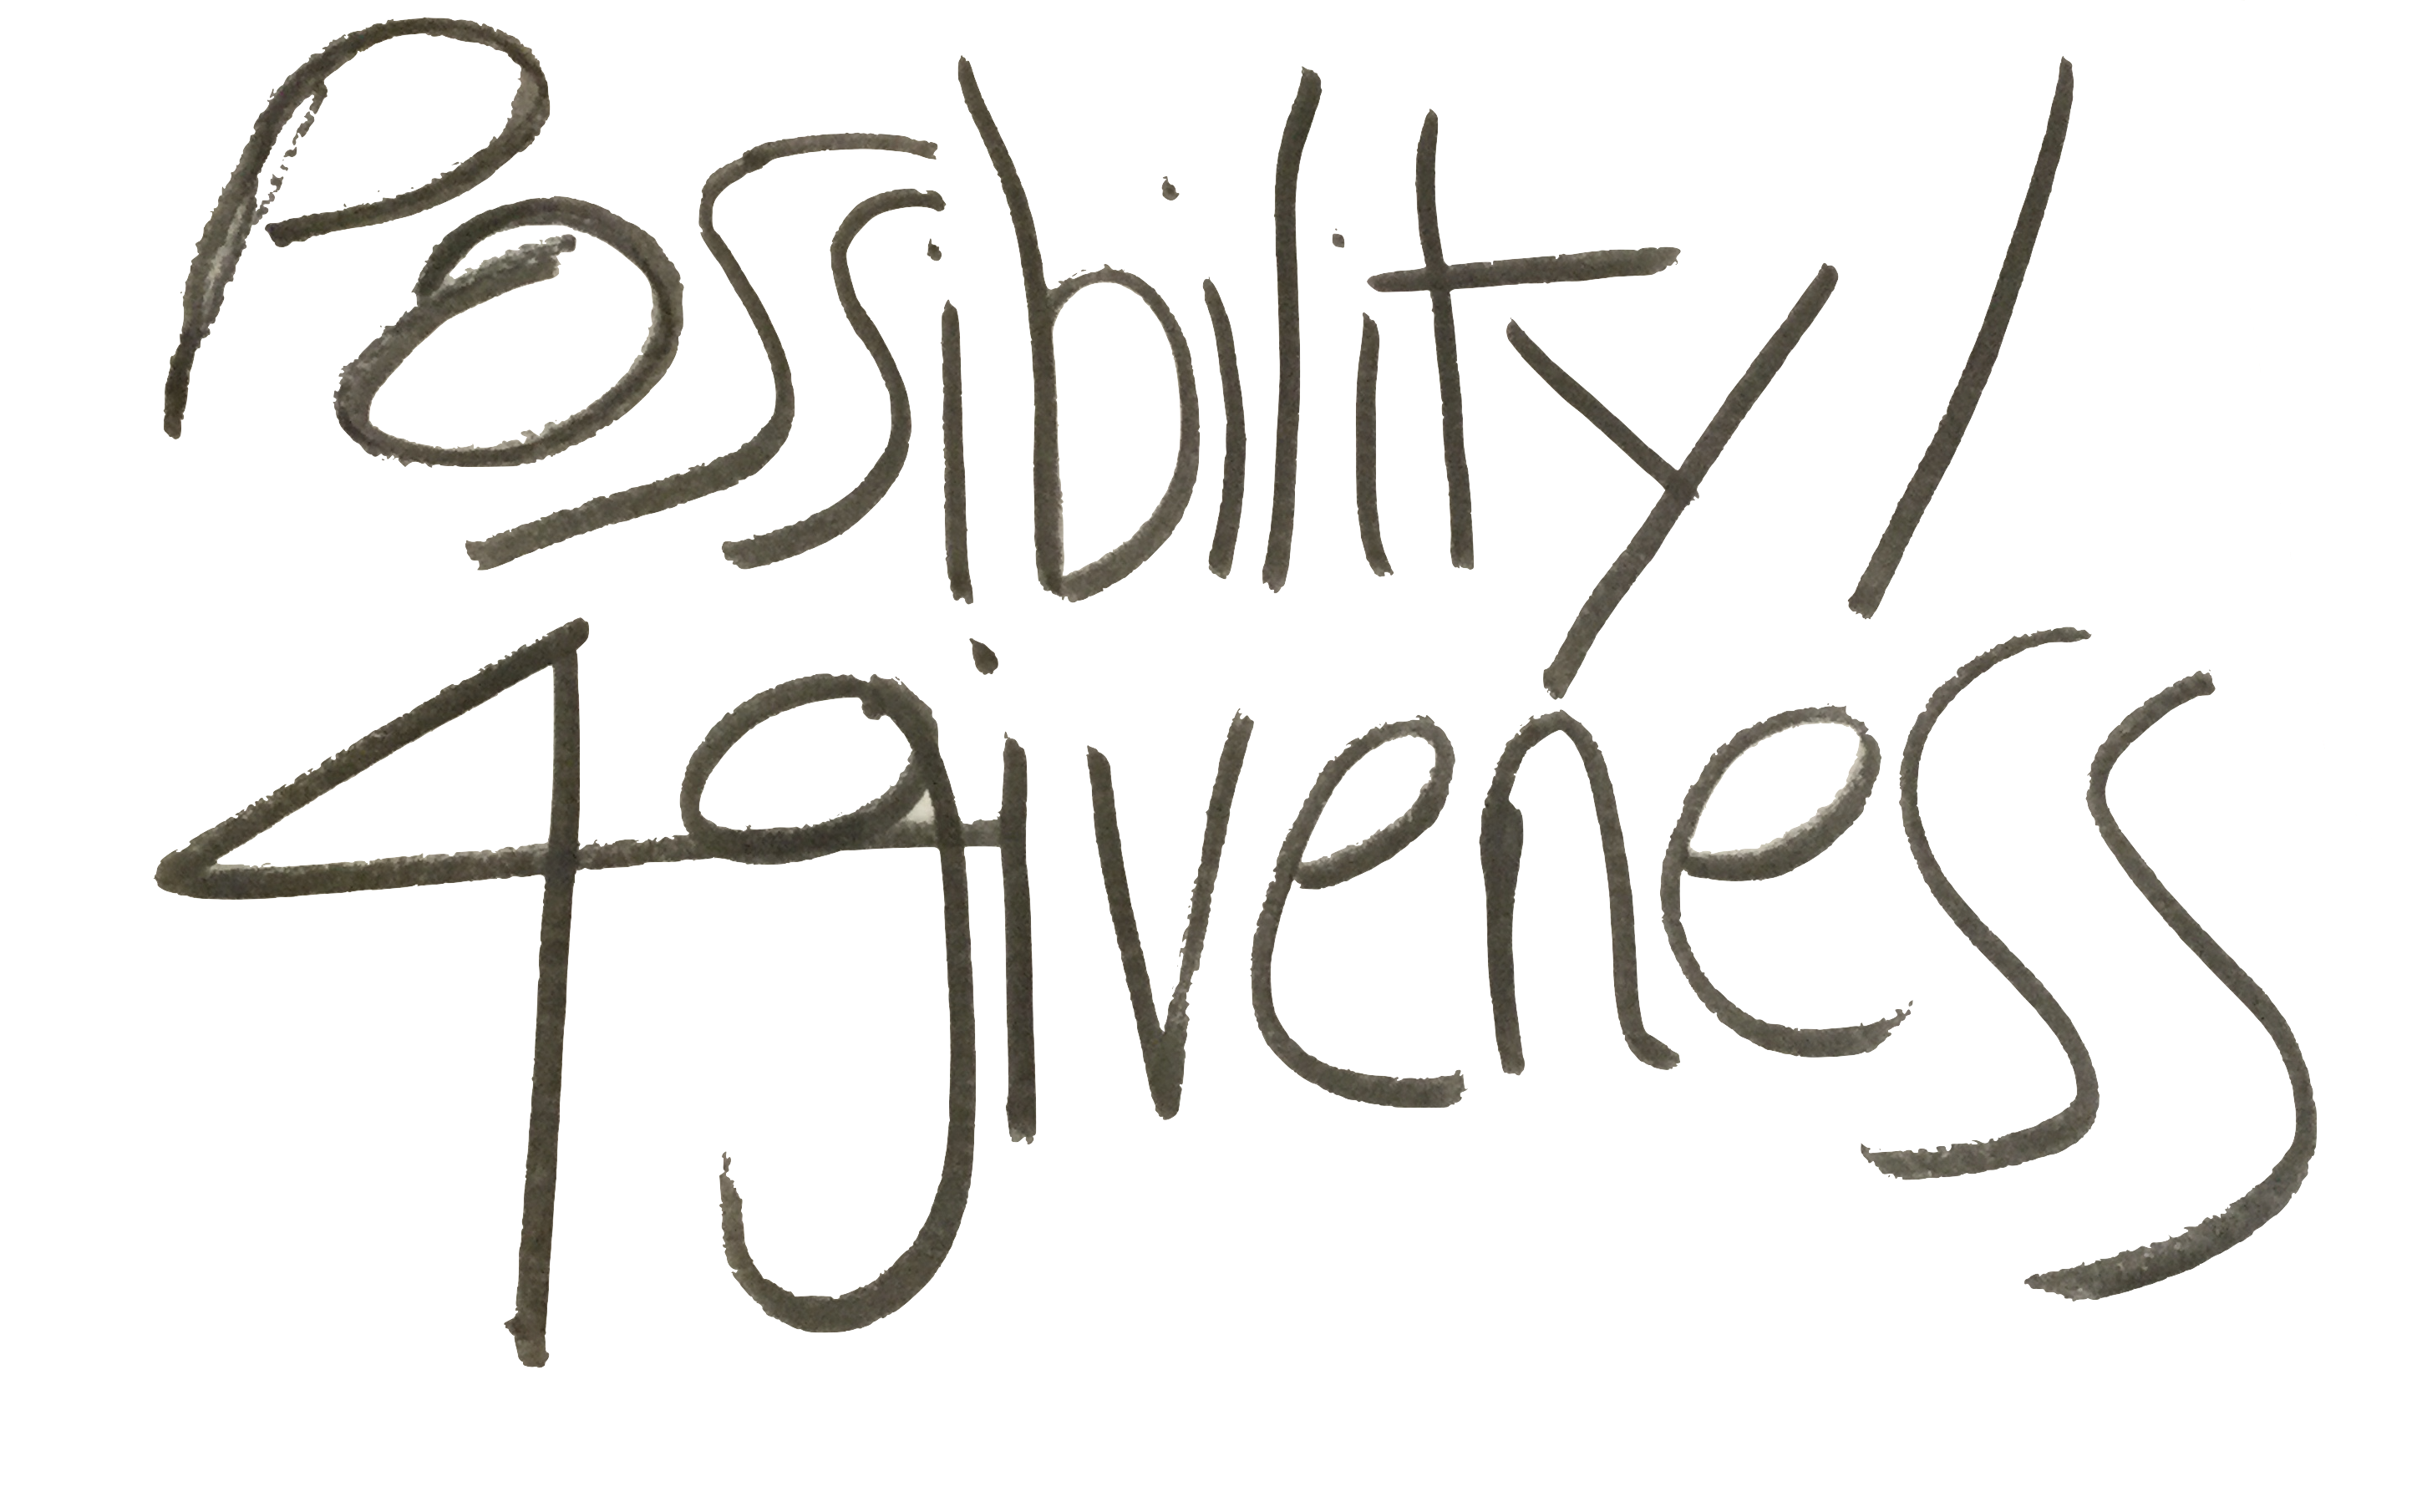 Possibility/
4giveness